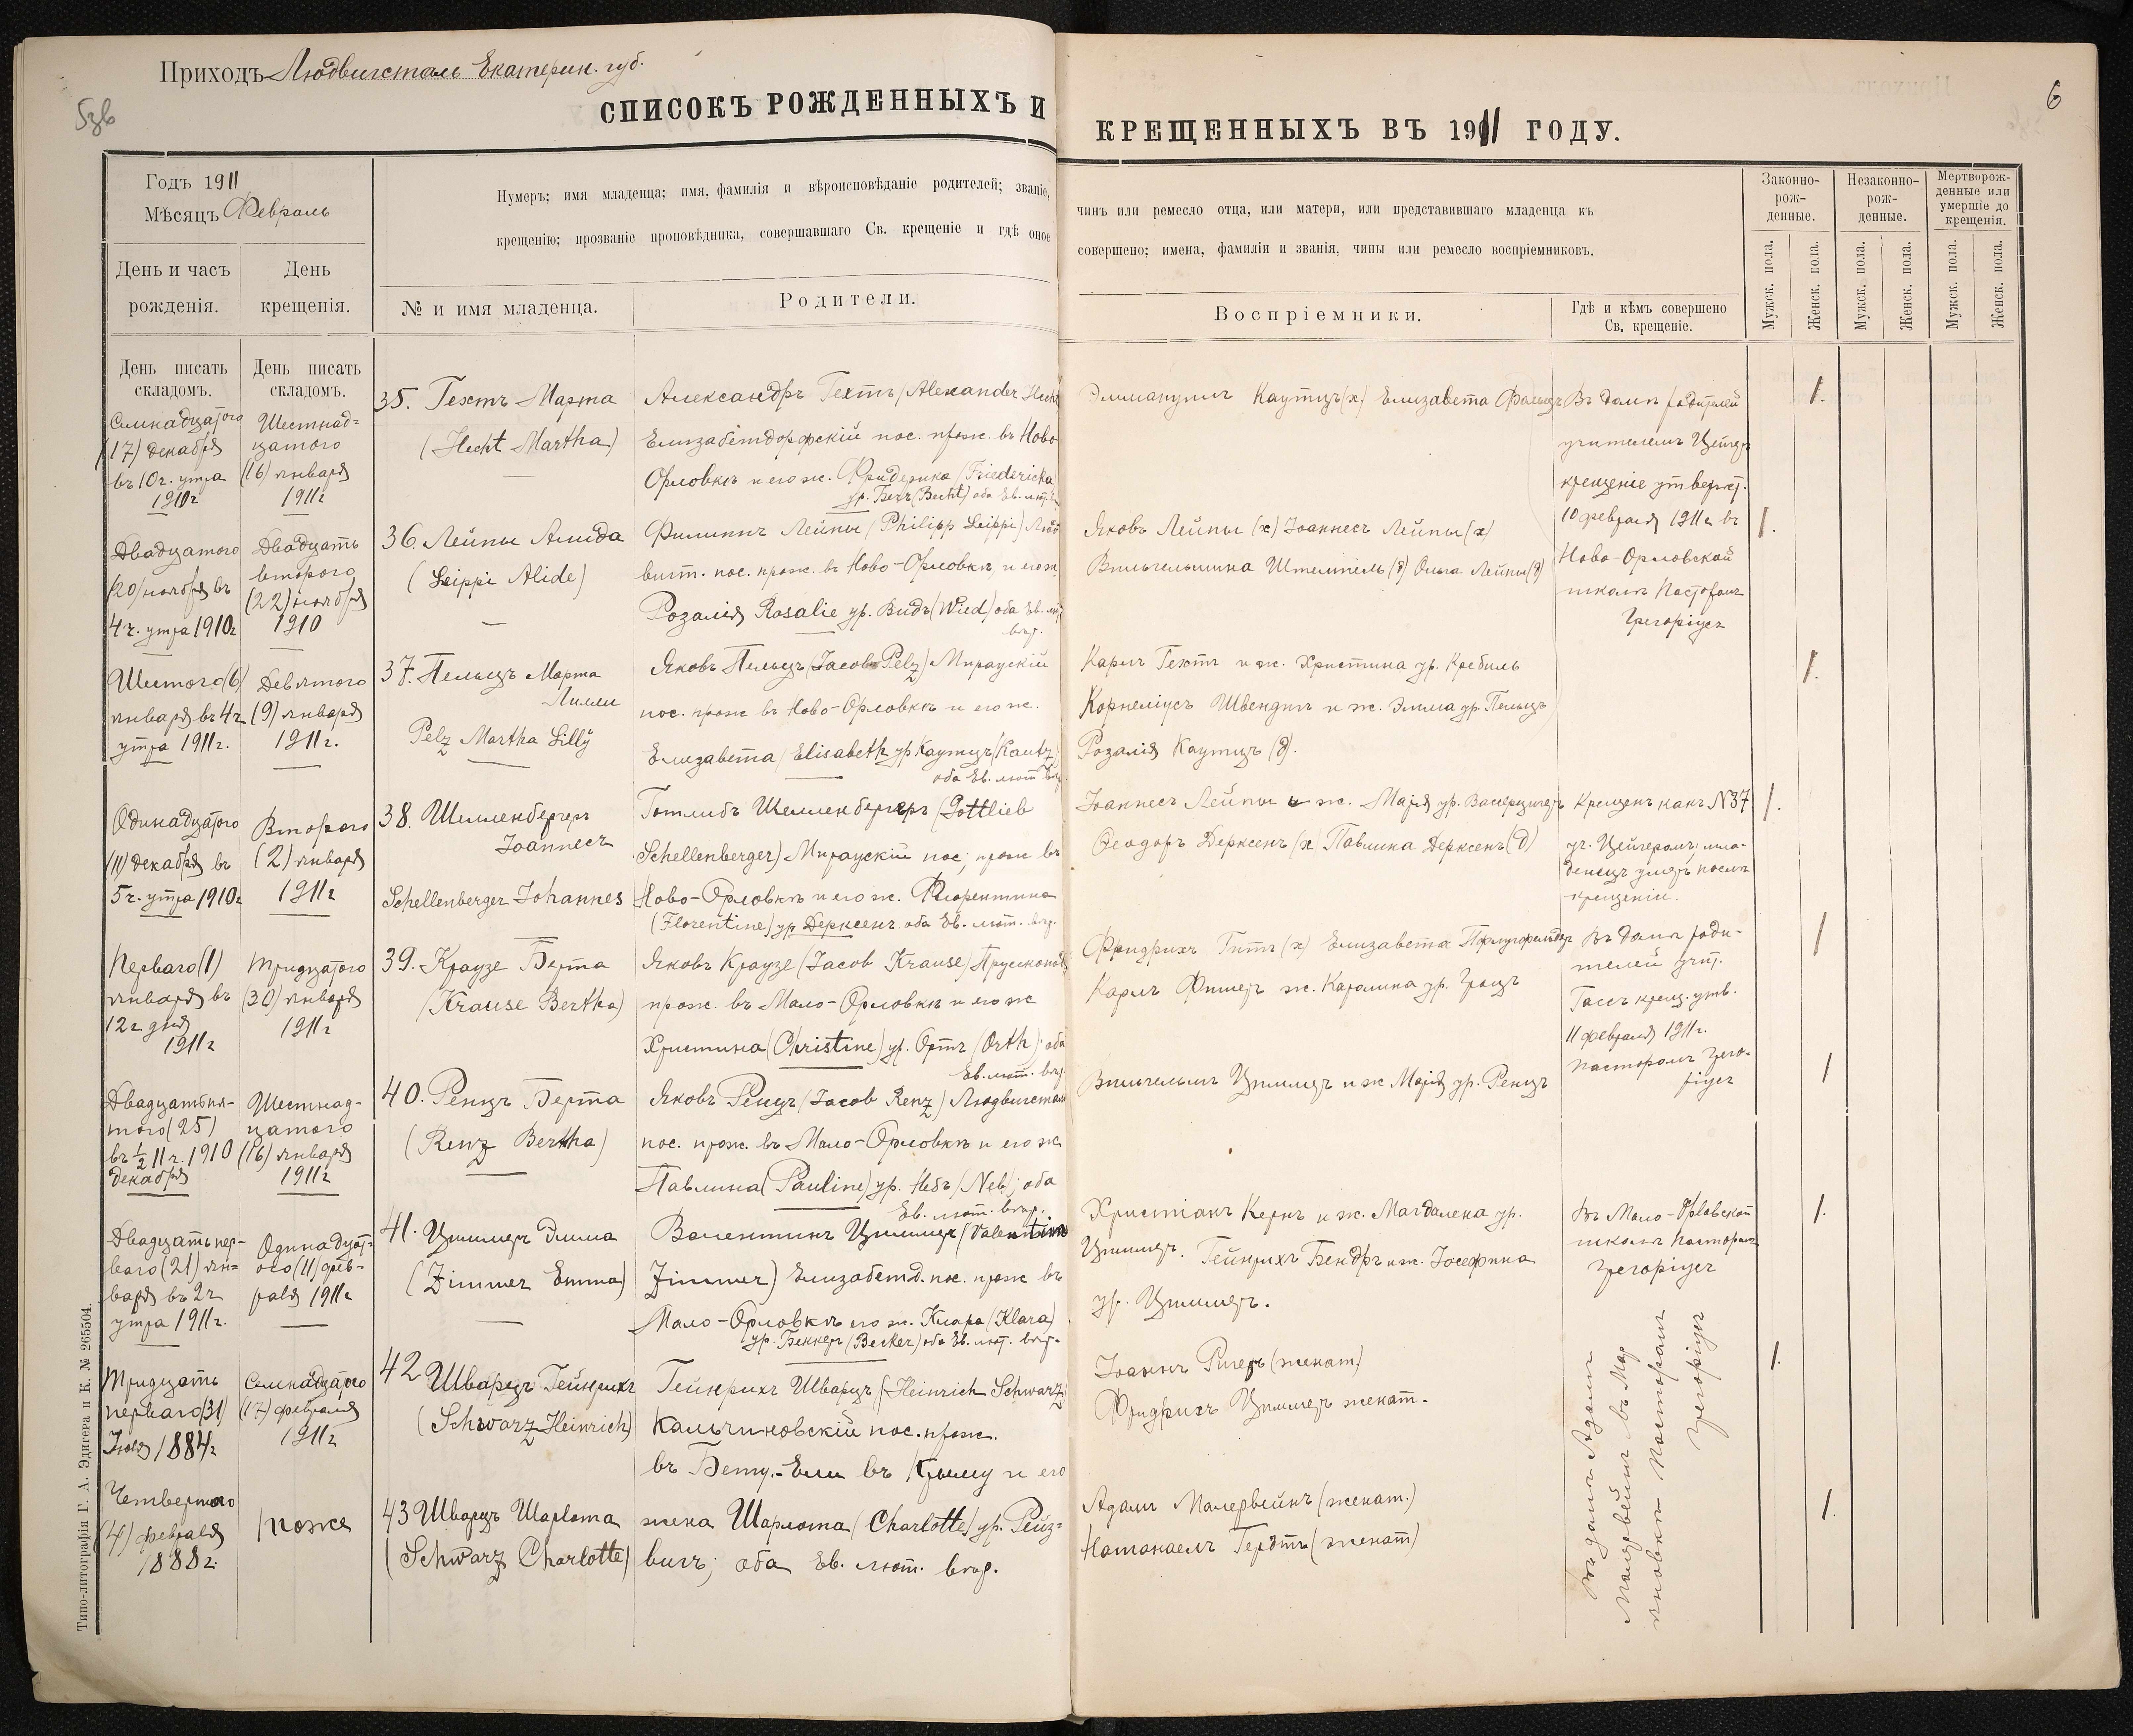 Приходъ Людвигсталь Екатерин. губ.
5зв
6
СПИСОКЪ РОЖДЕННЫХЪ И
КРЕЩЕННЫХЪ ВЪ 1911 ГОДУ.
Годъ 1911
Мѣсяцъ Февраль
Нумеръ; имя младенца; имя, фамилія и вѣроисповѣданіе родителей; званіе,
чинъ или ремесло отца, или матери, или представившаго младенца къ
крещенію; прозваніе проповѣдника, совершавшаго Св. крещеніе и гдѣ оное
совершено; имена, фамиліи и званія, чины или ремесло воспріемниковъ.
Законно-
рож-
денные.
Незаконно-
рож-
денные.
Мертворож-
денные или
умершіе до
крещенія.
День и часъ
рожденія.
День
крещенія.
№ и имя младенца.
Родители.
Воспріемники.
Гдѣ и кѣмъ совершено
Св. крещеніе.
Мужск. пола.
Женск. пола.
Мужск. пола.
Женск. пола.
Мужск. пола.
Женск. пола.
День писать
складомъ.
День писать
складомъ.
Семнадцатого
(17) декабря
въ 10 ч. утра
1910 г
Шестнад-
цатого
(16) января
1911 г
35. Гехтъ Марта
(Hecht Martha)
Александръ Гехтъ (Alexander Hecht
Елизабетдорфскій пос. прож. въ Ново
Орловкѣ и его ж. Фридерика (Friedericka
ур. Бехт (Becht) оба Ев. лют.
Эммануилъ Каутцъ (х) Елизавета
Въ домѣ родителей
учителемъ
крещеніе утвержд.
10 февраля 1911 г. въ
Ново-Орловской
школѣ Пасторомъ
Грегоріусъ
1.
Двадцатого
(20) ноября въ
4 ч. утра 1910 г
Двадцать
второго
(22) ноября
1910
36. Лейпы Алида
(Leippi Alide)
Филиппъ Лейпы (Philipp Leippi) Люд
вигст. пос. прож. въ Ново-Орловкѣ и его ж
Розалія Rosalie ур. Видъ (Wied) оба Ев. лют
вѣр.
Яковъ Лейпы (х) Іоаннесъ Лейпы (х)
Вильгельмина Штемпель (д) Ольга Лейпы (д)
1.
Шестого (6)
января въ 4 ч
утра 1911 г.
Девятого
(9) января
1911 г.
37. Пельцъ Марта
Лилли
Pelz Martha Lilly
Яковъ Пельцъ (Jacob Pelz) Мирауский
пос. прож въ Ново-Орловкѣ и его ж.
Елизавета (Elisabeth ур Каутцъ (Kautz)
оба Ев. лют вѣр.
Карлъ Гехтъ и ж. Христина ур. Кребиль
Корнеліусъ Швендихъ и ж. Эмма ур. Пельцъ
Розалія Каутцъ (д).
1.
Одинадцатого
(11) декабря въ
5 ч. утра 1910 г
Второго
(2) января
1911 г
38. Шелленбергеръ
Іоаннесъ
Schellenberger Johannes
Готлибъ Шелленбергеръ (Gottlieb
Schellenberger) Мирауский пос; прож въ
Ново-Орловкѣ и его ж. Флорентина
(Florentine) ур Дерксенъ оба Ев. лют. вѣр.
Іоаннесъ Лейпы и ж. Марія ур.
Теодоръ Дерксенъ (х) Павлина Дерксенъ (д)
Крещенъ какъ №37
уч. Цейгеромъ, мла-
денецъ умеръ послѣ
крещенія.
1.
Перваго (1)
января въ
12 ч дня
1911 г
Тридцатого
(30) января
1911 г
39. Краузе Берта
(Krause Bertha)
Яковъ Краузе (Jacob Krause)
прож. въ Мало-Орловкѣ и его ж
Христина (Christine) ур. Ортъ (Orth); оба
Ев. лют. вѣр
Фридрихъ Гитъ (х) Елизавета
Карлъ Фишеръ ж. Каролина ур.
Въ домѣ роди-
телей учит.
крещ. утв.
11 февраля 1911 г.
Пасторомъ Грего-
ріусъ
1
Двадцатьпя-
того (25)
въ ½ 11 ч. 1910
декабря
Шестнад-
цатого
(16) января
1911 г
40. Ренцъ Берта
(Renz Bertha)
Яковъ Ренцъ (Jacob Renz) Людвигстал
пос. прож. въ Мало-Орловкѣ и его ж
Павлина (Pauline) ур. Небъ (Neb); оба
Ев. лют. вѣр.
Вильгельмъ Циммеръ и ж Марія ур. Ренцъ
1
Двадцать пер-
ваго (21) ян-
варя въ 2 ч
утра 1911 г.
Одинадцат-
ого (11) фев-
раля 1911 г
41. Циммеръ Эмма
(Zimmer Emma)
Валентинъ Циммеръ (Valentin
Zimmer) Елизабетд. пос. прож въ
Мало-Орловкѣ его ж. Клара (Klara)
ур. Беккеръ (Becker) оба Ев. лют. вѣр.
Христіанъ Кернъ и ж. Магдалена ур.
Циммеръ. Гейнрихъ Бендръ и ж. Іосефина
ур. Циммеръ.
Въ Мало-Орловской
школѣ Пасторомъ
Грегоріусъ
1.
Тридцать
перваго (31)
Іюля 1884 г
Семнадцатого
(17) февраля
1911 г
42 Шварцъ Гейнрихъ
(Schwarz Heinrich)
Гейнрихъ Шварцъ (Heinrich Schwarz)
Кальчиновскій пос. прож.
въ Бету.-Ели въ Крыму и его
Іоаннъ Ригеръ (женат.)
Фридрихъ Циммеръ женат.
Въ домѣ Адама
Малервейнъ въ Мар
яновкѣ Пасторомъ
Грегоріусъ
1.
Четвертого
(4) февраля
1888 г.
тоже
43 Шварцъ Шарлота
(Schwarz Charlotte)
жена Шарлота (Charlotte) ур. Рейз-
вигъ; оба Ев. лют. вѣр.
Адамъ Малервейнъ (женат.)
Натанаелъ Гердтъ (женат)
1.
Типо-литографія Г. А. Эдигера и К. № 265504.